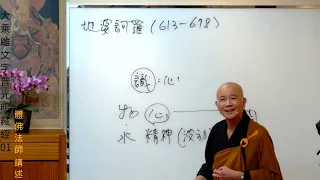 地婆訶羅（613－698）
識：心
物 心
水 精神（波動
大乘離文字普光明藏經01
體佛法師講述